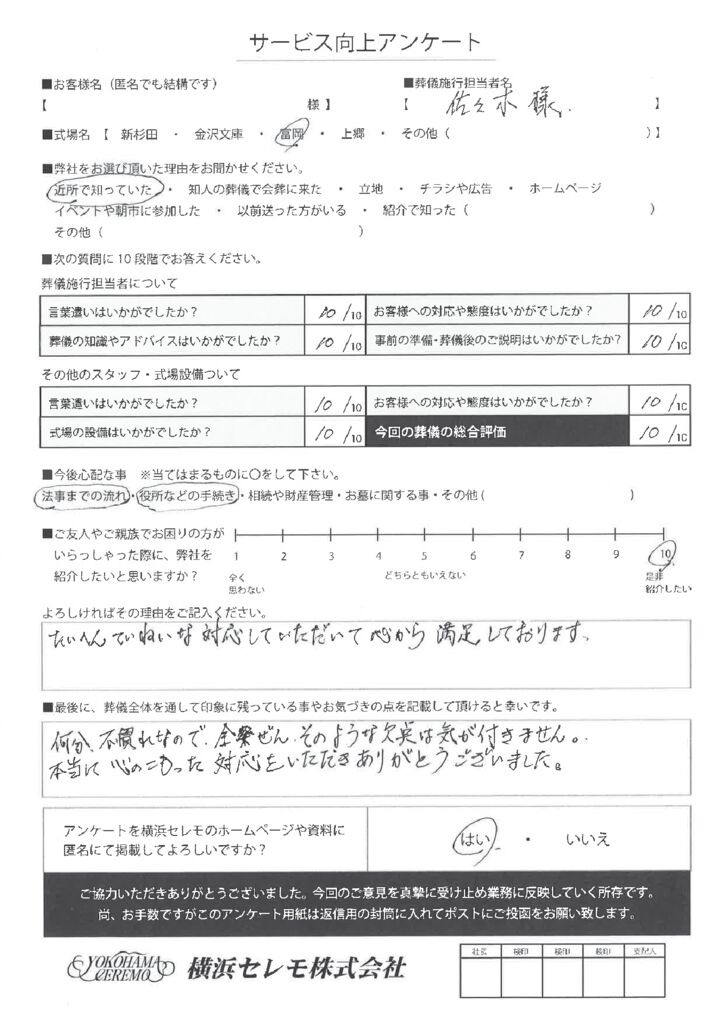 サービス向上アンケート
■お客様名（匿名でも結構です）　■葬儀施行担当者名
【　　　様】　【　佐々木様　】
■式場名【　新杉田　・　金沢文庫　・　富岡　・　上郷　・　その他（　　　）】
■弊社をお選び頂いた理由をお聞かせください。
近所で知っていた　・　知人の葬儀で会葬に来た　・　立地　・　チラシや広告　・　ホームページ
イベントや朝市に参加した　・　以前送った方がいる　・　紹介で知った（　　　）
その他（　　　）
■次の質問に10段階でお答えください。
葬儀施行担当者について
言葉遣いはいかがでしたか？　10/10　お客様への対応や態度はいかがでしたか？　10/10
葬儀の知識やアドバイスはいかがでしたか？　10/10　事前の準備・葬儀後のご説明はいかがでしたか?　10/10
その他のスタッフ・式場設備ついて
言葉遣いはいかがでしたか？　10/10　お客様への対応や態度はいかがでしたか？　10/10
式場の設備はいかがでしたか？　10/10　今回の葬儀の総合評価　10/10
■今後心配な事　※当てはまるものに〇をして下さい。
法事までの流れ・役所などの手続き・相続や財産管理・お墓に関する事・その他（　　　）
■ご友人やご親族でお困りの方が
いらっしゃった際に、弊社を
紹介したいと思いますか？
1　2　3　4　5　6　7　8　9　10
全く　どちらともいえない　是非
思わない　紹介したい
よろしければその理由をご記入ください。
たいへんていねいな対応していただいて心から満足しております。
■最後に、葬儀全体を通して印象に残っている事やお気づきの点を記載して頂けると幸いです。
何分、不慣れなので、ぜん、そのような欠点は気が付きません。
本当に心のこもった対応をいただきありがとうございました。
アンケートを横浜セレモのホームページや資料に
匿名にて掲載してよろしいですか？
はい　・　いいえ
ご協力いただきありがとうございました。今回のご意見を真摯に受け止め業務に反映していく所存です。
尚、お手数ですがこのアンケート用紙は返信用の封筒に入れてポストにご投函をお願い致します。
YOKOHAMA
CEREMO
横浜セレモ株式会社
社長　検印　検印　検印　支配人